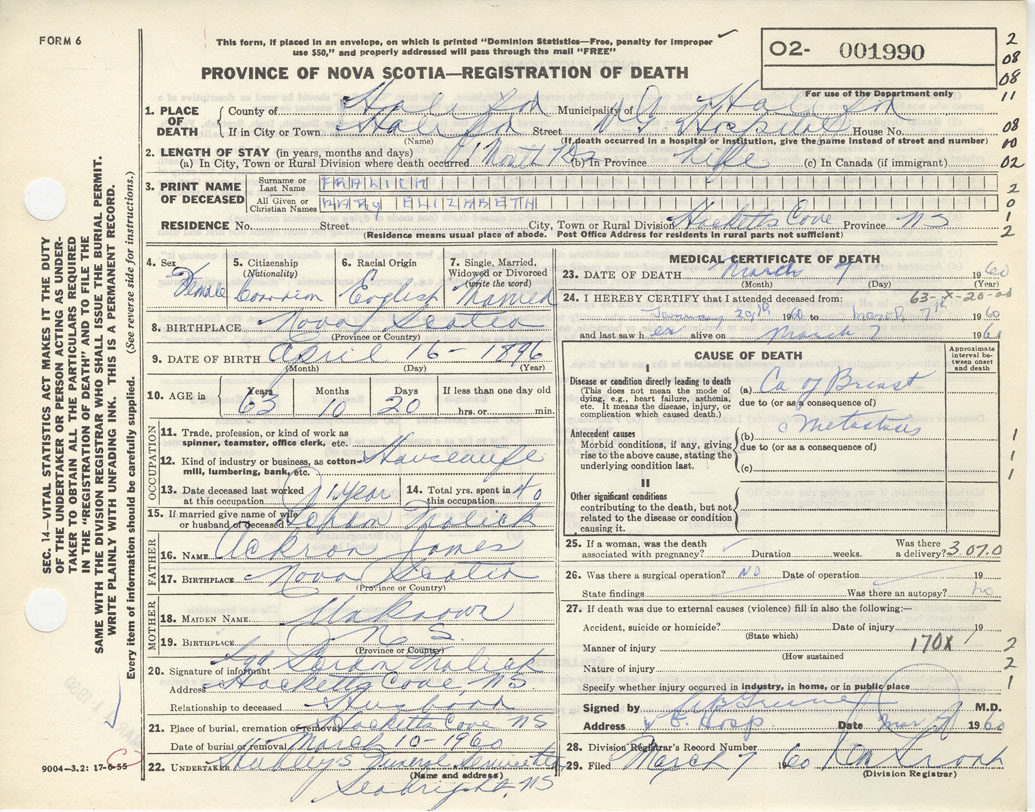 FORM 6
This form, if placed in an envelope, on which is printed "Dominion Statistics—Free, penalty for improper
use $50," and properly addressed will pass through the mail "FREE"
PROVINCE OF NOVA SCOTIA—REGISTRATION OF DEATH
O2- 001990
For use of the Department only
2
08
08
11
1. PLACE OF DEATH County of Halifax Municipality of Halifax
If in City or Town Halifax Street V G Hospital House No.
(Name) (If death occurred in a hospital or institution, give the name instead of street and number)
08
00
02
2. LENGTH OF STAY (in years, months and days)
(a) In City, Town or Rural Division where death occurred 1 Month (b) In Province Life (c) In Canada (if immigrant)
3. PRINT NAME OF DECEASED Surname or Last Name FRALICK
All Given or Christian Names MARY ELIZABETH
2
0
1
2
RESIDENCE No. Street City, Town or Rural Division Hacketts Cove Province NS
(Residence means usual place of abode. Post Office Address for residents in rural parts not sufficient)
4. Sex Female
5. Citizenship (Nationality) Canadian
6. Racial Origin English
7. Single, Married, Widowed or Divorced (write the word) Married
8. BIRTHPLACE Nova Scotia
(Province or Country)
9. DATE OF BIRTH April 16 - 1896
(Month) (Day) (Year)
10. AGE in Years 63 Months 10 Days 20 If less than one day old hrs. or min.
OCCUPATION
11. Trade, profession, or kind of work as spinner, teamster, office clerk, etc.
12. Kind of industry or business, as cotton-mill, lumbering, bank, etc. Housewife
13. Date deceased last worked at this occupation 1 year
14. Total yrs. spent in this occupation 40
15. If married give name of wife or husband of deceased Fralick
FATHER
16. NAME James
17. BIRTHPLACE Nova Scotia
(Province or Country)
MOTHER
18. MAIDEN NAME Unknown
19. BIRTHPLACE N. S.
(Province or Country)
20. Signature of informant Sgd Fralick
Address Hacketts Cove, NS
Relationship to deceased Husband
21. Place of burial, cremation or removal Hacketts Cove NS
Date of burial or removal March 10 - 1960
22. UNDERTAKER Funeral
(Name and address)
Seabright, NS
MEDICAL CERTIFICATE OF DEATH
23. DATE OF DEATH March 7 1960
(Month) (Day) (Year)
63-X-20-
24. I HEREBY CERTIFY that I attended deceased from:
January 29th 1960 to March 7th 1960
and last saw her alive on March 7 1960
CAUSE OF DEATH
Approximate interval between onset and death
I
Disease or condition directly leading to death
(This does not mean the mode of dying, e.g., heart failure, asthenia, etc. It means the disease, injury, or complication which caused death.)
(a) Ca of Breast
due to (or as a consequence of)
Antecedent causes
Morbid conditions, if any, giving rise to the above cause, stating the underlying condition last.
(b) Metastasis
due to (or as a consequence of)
(c)
1
1
1
II
Other significant conditions contributing to the death, but not related to the disease or condition causing it.
25. If a woman, was the death associated with pregnancy? Duration weeks. Was there a delivery? 3.07.0
26. Was there a surgical operation? NO Date of operation 19
State findings Was there an autopsy? No
27. If death was due to external causes (violence) fill in also the following:—
Accident, suicide or homicide? Date of injury 19
(State which)
Manner of injury 170X
(How sustained)
Nature of injury
Specify whether injury occurred in industry, in home, or in public place
2
2
1
Signed by M.D.
Address V G. Hosp Date Mar 7 1960
28. Division Registrar's Record Number
29. Filed March 7 1960
(Division Registrar)
SEC. 14—VITAL STATISTICS ACT MAKES IT THE DUTY
OF THE UNDERTAKER OR PERSON ACTING AS UNDER-
TAKER TO OBTAIN ALL THE PARTICULARS REQUIRED
IN THE "REGISTRATION OF DEATH" AND TO FILE THE
SAME WITH THE DIVISION REGISTRAR WHO SHALL ISSUE THE BURIAL PERMIT.
WRITE PLAINLY WITH UNFADING INK. THIS IS A PERMANENT RECORD.
Every item of information should be carefully supplied. (See reverse side for instructions.)
9004-3.2: 17-6-55